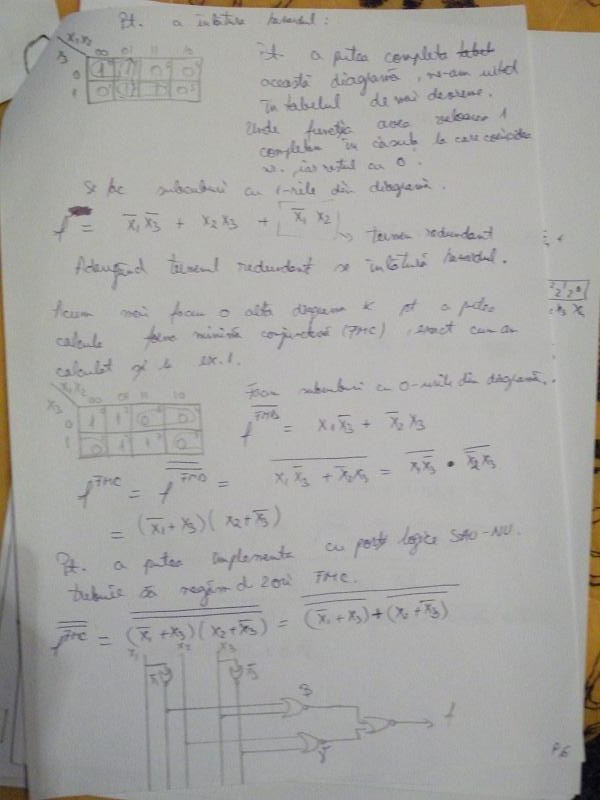 Pt. a înlătura hazardul:
x1x2
x3 00 01 11 10
0 1 1 0 0
1 0 1 1 0
Pt a putea completa
această diagramă, ne-am uitat
în tabelul de mai devreme.
Unde funcția avea valoarea 1
completam în căsuța la care coincidea
nr., iar restul cu 0.
Se fac subcuburi cu 1-rile din diagramă.
f = x̄1 x̄3 + x2 x3 + x̄1 x2
→ termen redundant
Adăugând termenul redundant se înlătură hazardul.
Acum mai facem o altă diagramă K pt a putea
calcula forma minimă conjunctivă (FMC), exact cum am
calculat și la ex. 1.
x1x2
x3 00 01 11 10
0 1 1 0 0
1 0 1 1 0
Facem subcuburi cu 0-urile din diagramă.
f = x1 x̄3 + x̄2 x3
f^FMC = f = x1 x̄3 + x̄2 x3 = x1 x̄3 • x̄2 x3
= (x̄1 + x3)(x2 + x̄3)
Pt. a putea implementa cu porți logice SAU-NU.
trebuie să negăm d 2 ori FMC.
f^FMC = (x̄1 + x3)(x2 + x̄3) = (x̄1 + x3) + (x2 + x̄3)
x1 x2 x3
x̄1 x̄3
f
P.6